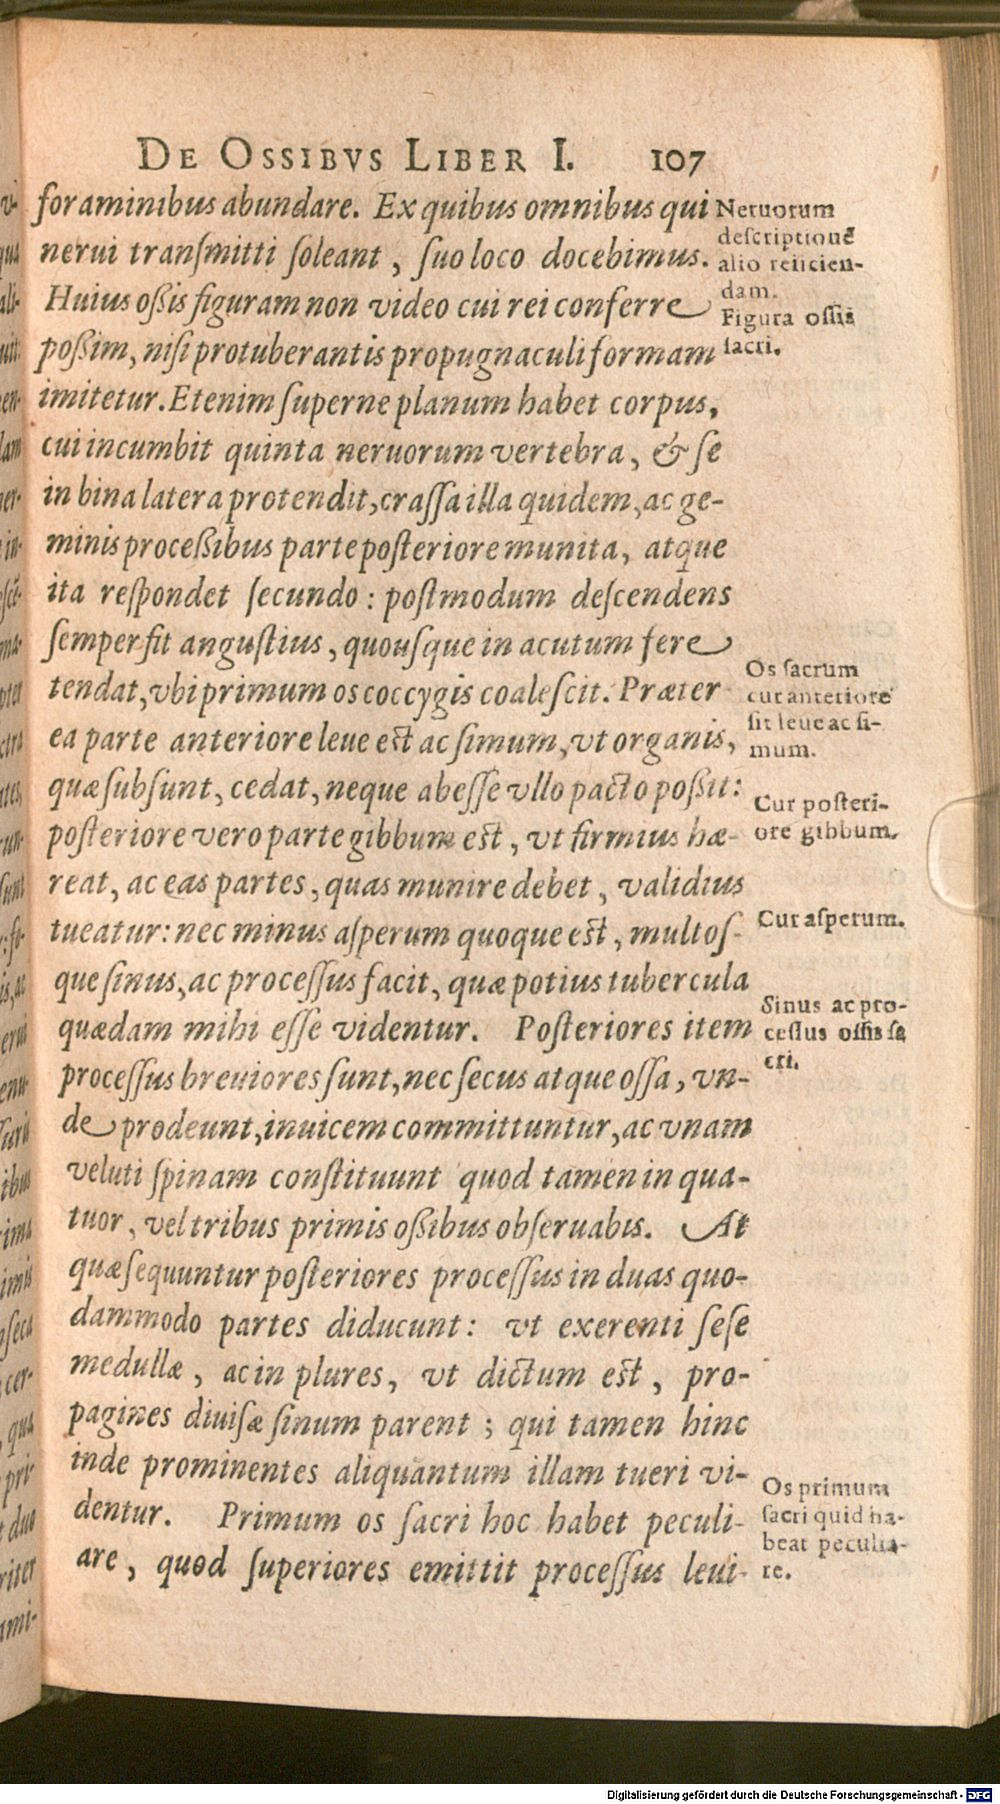 DE OSSIBVS LIBER I. 107
foraminibus abundare. Ex quibus omnibus qui
nerui transmitti soleant, suo loco docebimus.
Huius oßis figuram non video cui rei conferre
poßim, nisi protuberantis propugnaculi formam
imitetur. Etenim superne planum habet corpus,
cui incumbit quinta neruorum vertebra, & se
in bina latera protendit, crassa illa quidem, ac ge-
minis proceßibus parte posteriore munita, atque
ita respondet secundo: postmodum descendens
semper fit angustius, quousque in acutum fere
tendat, vbi primum os coccygis coalescit. Præter
ea parte anteriore leue est ac simum, vt organis,
quæ subsunt, cedat, neque abesse vllo pacto poßit:
posteriore vero parte gibbum est, vt firmius hæ-
reat, ac eas partes, quas munire debet, validius
tueatur: nec minus asperum quoque est, multos-
que sinus, ac processus facit, quæ potius tubercula
quædam mihi esse videntur. Posteriores item
processus breuiores sunt, nec secus atque ossa, vn-
de prodeunt, inuicem committuntur, ac vnam
veluti spinam constituunt quod tamen in qua-
tuor, vel tribus primis oßibus obseruabis. At
quæ sequuntur posteriores processus in duas quo-
dammodo partes diducunt: vt exerenti sese
medullæ, ac in plures, vt dictum est, pro-
pagines diuisæ sinum parent; qui tamen hinc
inde prominentes aliquantum illam tueri vi-
dentur. Primum os sacri hoc habet peculi-
are, quod superiores emittit processus leui-
Neruorum
descriptionē
alio reiicien-
dam.
Figura ossis
sacri.
Os sacrum
cur anteriore
sit leue ac si-
mum.
Cur posteri-
ore gibbum.
Cur asperum.
Sinus ac pro-
cessus ossis sa
cri.
Os primum
sacri quid ha-
beat peculia-
re.
Digitalisierung gefördert durch die Deutsche Forschungsgemeinschaft - DFG